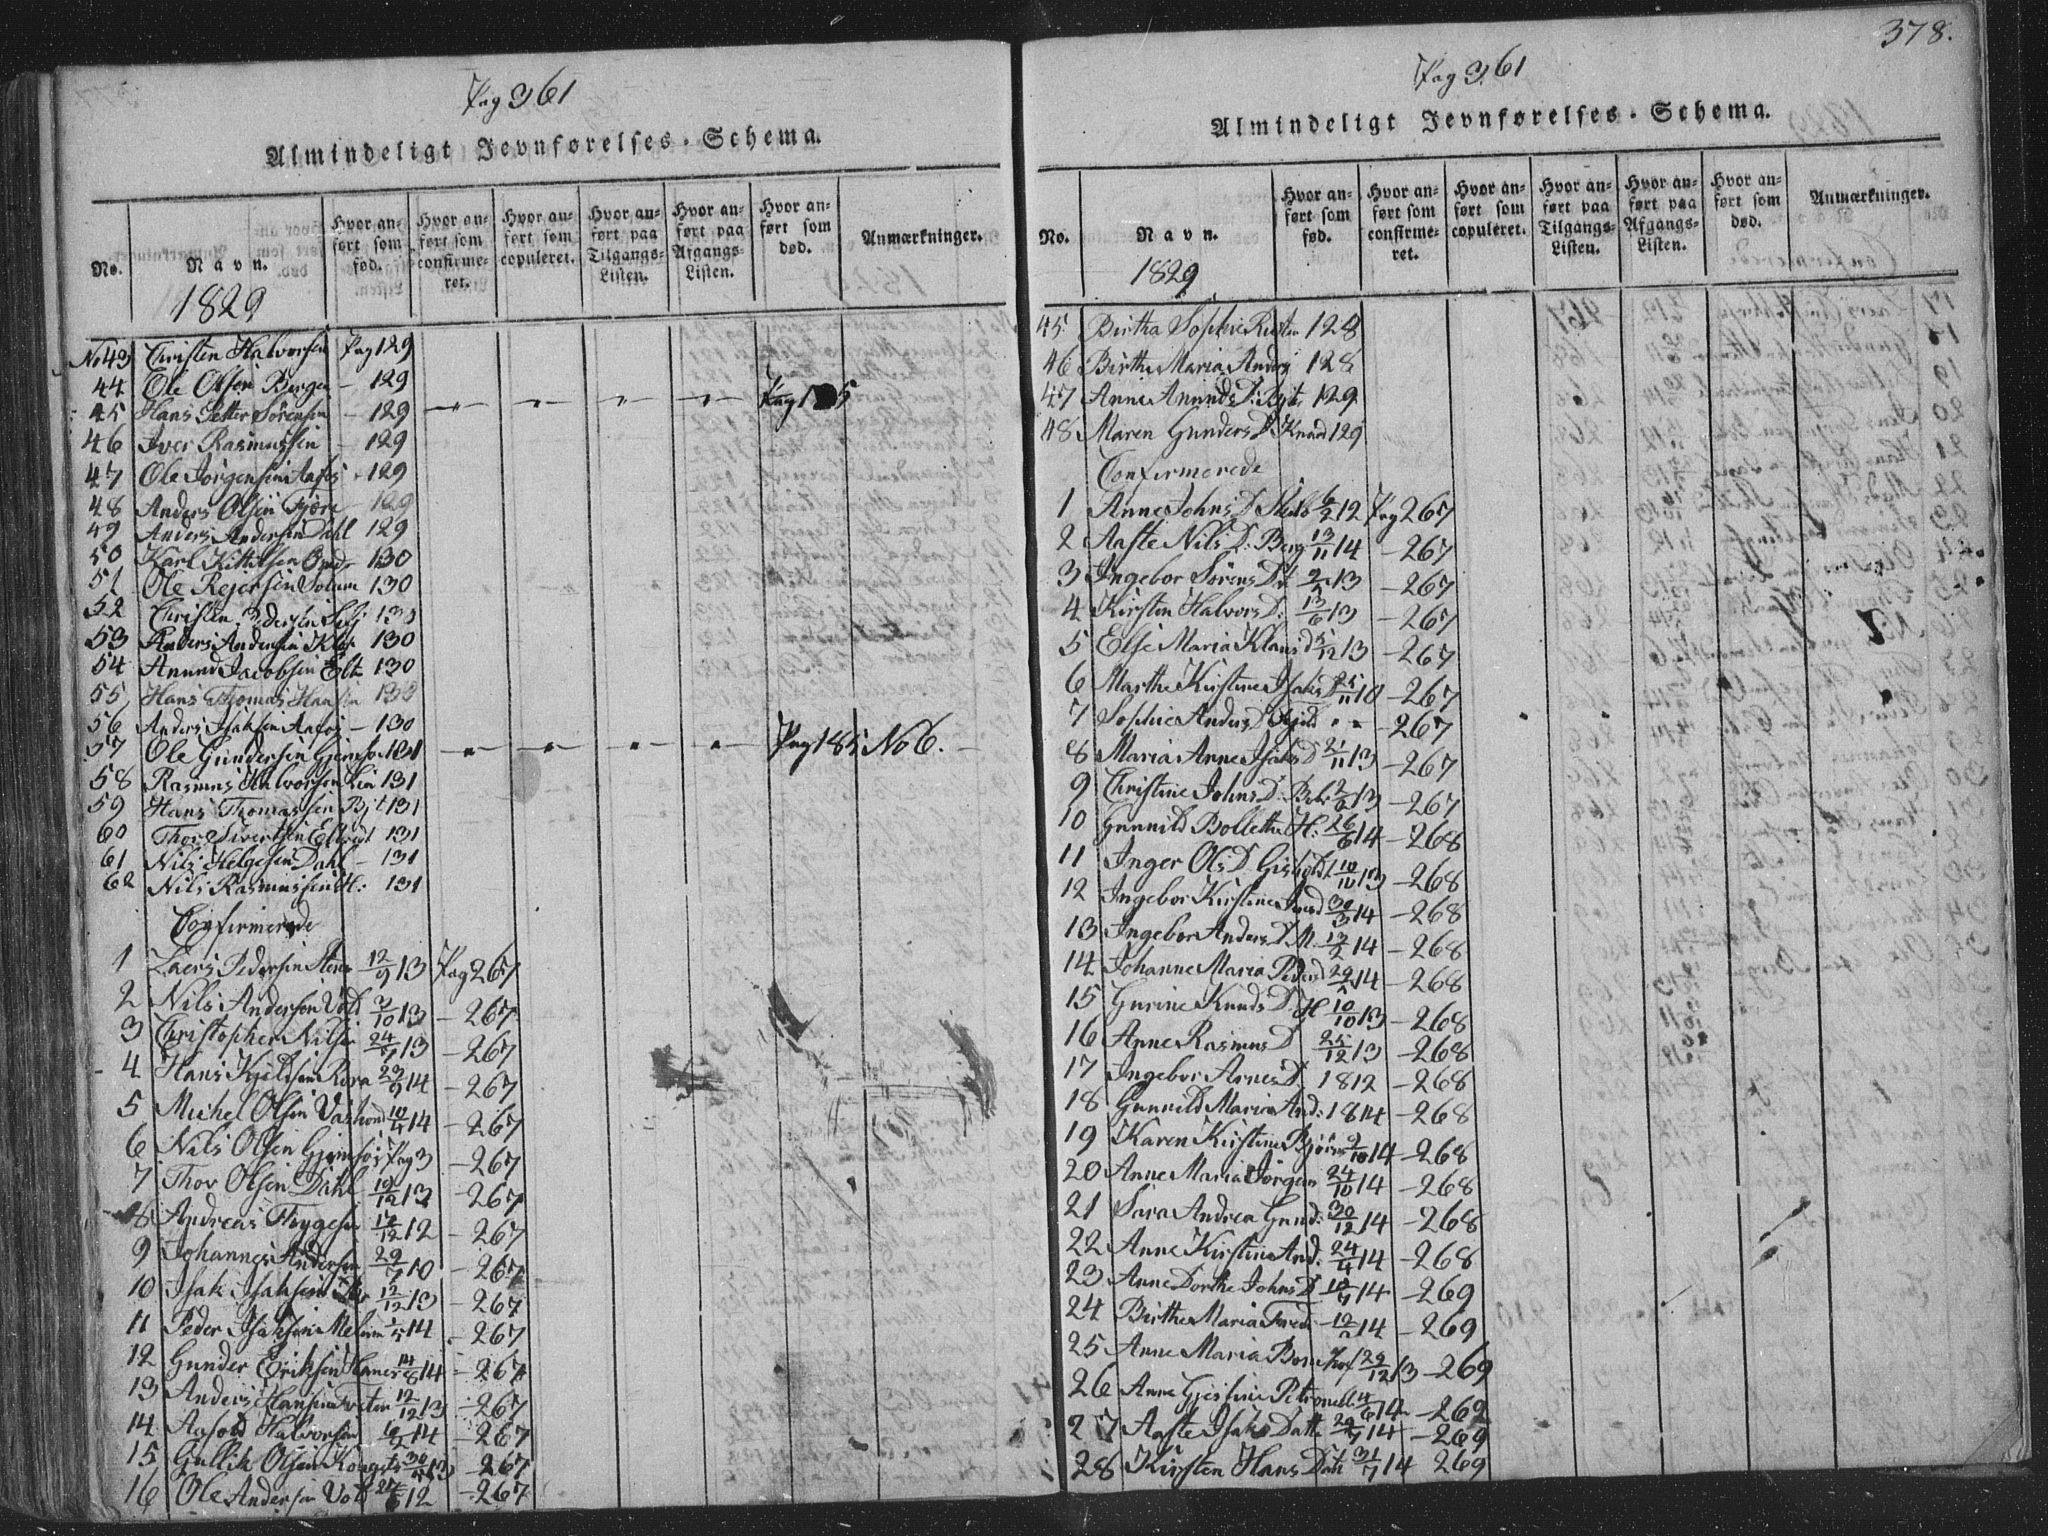 Pag 361
Almindeligt Jevnførelses-Schema.
No.
Navn.
Hvor anført som fød.
Hvor anført som confirmeret.
Hvor anført som copuleret.
Hvor anført paa Tilgangs-Listen.
Hvor anført paa Afgangs-Listen.
Hvor anført som død.
Anmærkninger.
1829
No 43 Christen Halvorsen Pag 129
44 Ole Olsen Bergen - 129
45 Hans Petter Sørensen - 129 " " " "
46 Iver Rasmussen - 129
47 Ole Jørgensen Aafos - 129
48 Anders Olsen Fjære 129
49 Anders Andersen Dahl 129
50 Karl Kittilsen 130
51 Ole Rejersen Solum 130
52 Christen Pedersen 130
53 Anders Andersen 130
54 Anund Jacobsen 130
55 Hans Thomas Hansen 130
56 Anders Isaksen Aafos - 130
57 Ole Gundersen 131 " " " " Pag 185 No 6.
58 Rasmus Halvorsen 131
59 Hans Thomassen 131
60 Thor Sivertsen 131
61 Nils Helgesen Dahl - 131
62 Nils Rasmussen 131
Confirmerede
1 Laers Pedersen 12/9 13 Pag 267
2 Nils Andersen Vold 3/10 13 - 267
3 Christopher Nilsen 24/7 13 - 267
4 Hans Kjeldsen Røra 23/9 14 - 267
5 Michel Olsen 10/4 14 - 267
6 Nils Olsen Pag 3 - 267
7 Thor Olsen Dahl 19/12 13 - 267
8 Andreas Thygesen 12/12 12 - 267
9 Johannes Andersen 29/7 10 - 267
10 Isak Isaksen 12/12 13 - 267
11 Peder Isaksen Melum 14 - 267
12 Gunder Eriksen 14/8 14 - 267
13 Anders Hansen 12/12 13 - 267
14 Aasold Halvorsen 14 - 267
15 Gullik Olsen 13 - 267
16 Ole Andersen Vold 12 - 267
378.
Pag 361
Almindeligt Jevnførelses-Schema.
No.
Navn.
Hvor anført som fød.
Hvor anført som confirmeret.
Hvor anført som copuleret.
Hvor anført paa Tilgangs-Listen.
Hvor anført paa Afgangs-Listen.
Hvor anført som død.
Anmærkninger.
1829
45 Birtha Sophie 128
46 Birthe Maria Anders 128
47 Anne Anunds D. 129
48 Maren Gunders D. Knud 129
Confirmerede
1 Anne Johns D. 6/2 12 Pag 267
2 Aaste Nils D. Berg 13/11 14 - 267
3 Ingebor Sørens D. 13 - 267
4 Kirsten Halvors D. 13/6 13 - 267
5 Else Maria Klaus d 5/12 13 - 267
6 Marthe Kirstine Isaks D 25/11 10 - 267
7 Sophie Anders D " " - 267
8 Maria Anne Isaks D 21/11 13 - 267
9 Christine Johns D. 13 - 267
10 Gunnild Bollette H. 26/6 14 - 268
11 Inger Ols D. 10/10 13 - 268
12 Ingebor Kirstine 30/3 14 - 268
13 Ingebor Anders D. M. 13/2 14 - 268
14 Johanne Maria Peders d 14 - 268
15 Gurine Knuds D. H 10/10 13 - 268
16 Anne Rasmus D. 25/12 13 - 268
17 Ingebor Arnes D. 1812 - 268
18 Gunnild Maria And. 1814 - 268
19 Karen Kirstine 9/10 14 - 268
20 Anne Maria Jørgens 24/10 14 - 268
21 Sara Andrea Gund. 30/12 14 - 268
22 Anne Kirstine And. 24/4 14 - 268
23 Anne Dorthe Johns D 14 - 269
24 Birthe Maria 14 - 269
25 Anne Maria 29/12 13 - 269
26 Anne Petronell. 4/6 14 - 269
27 Aaste Isaks Datt. 14 - 269
28 Kirsten Hans Dat. 31/7 14 269